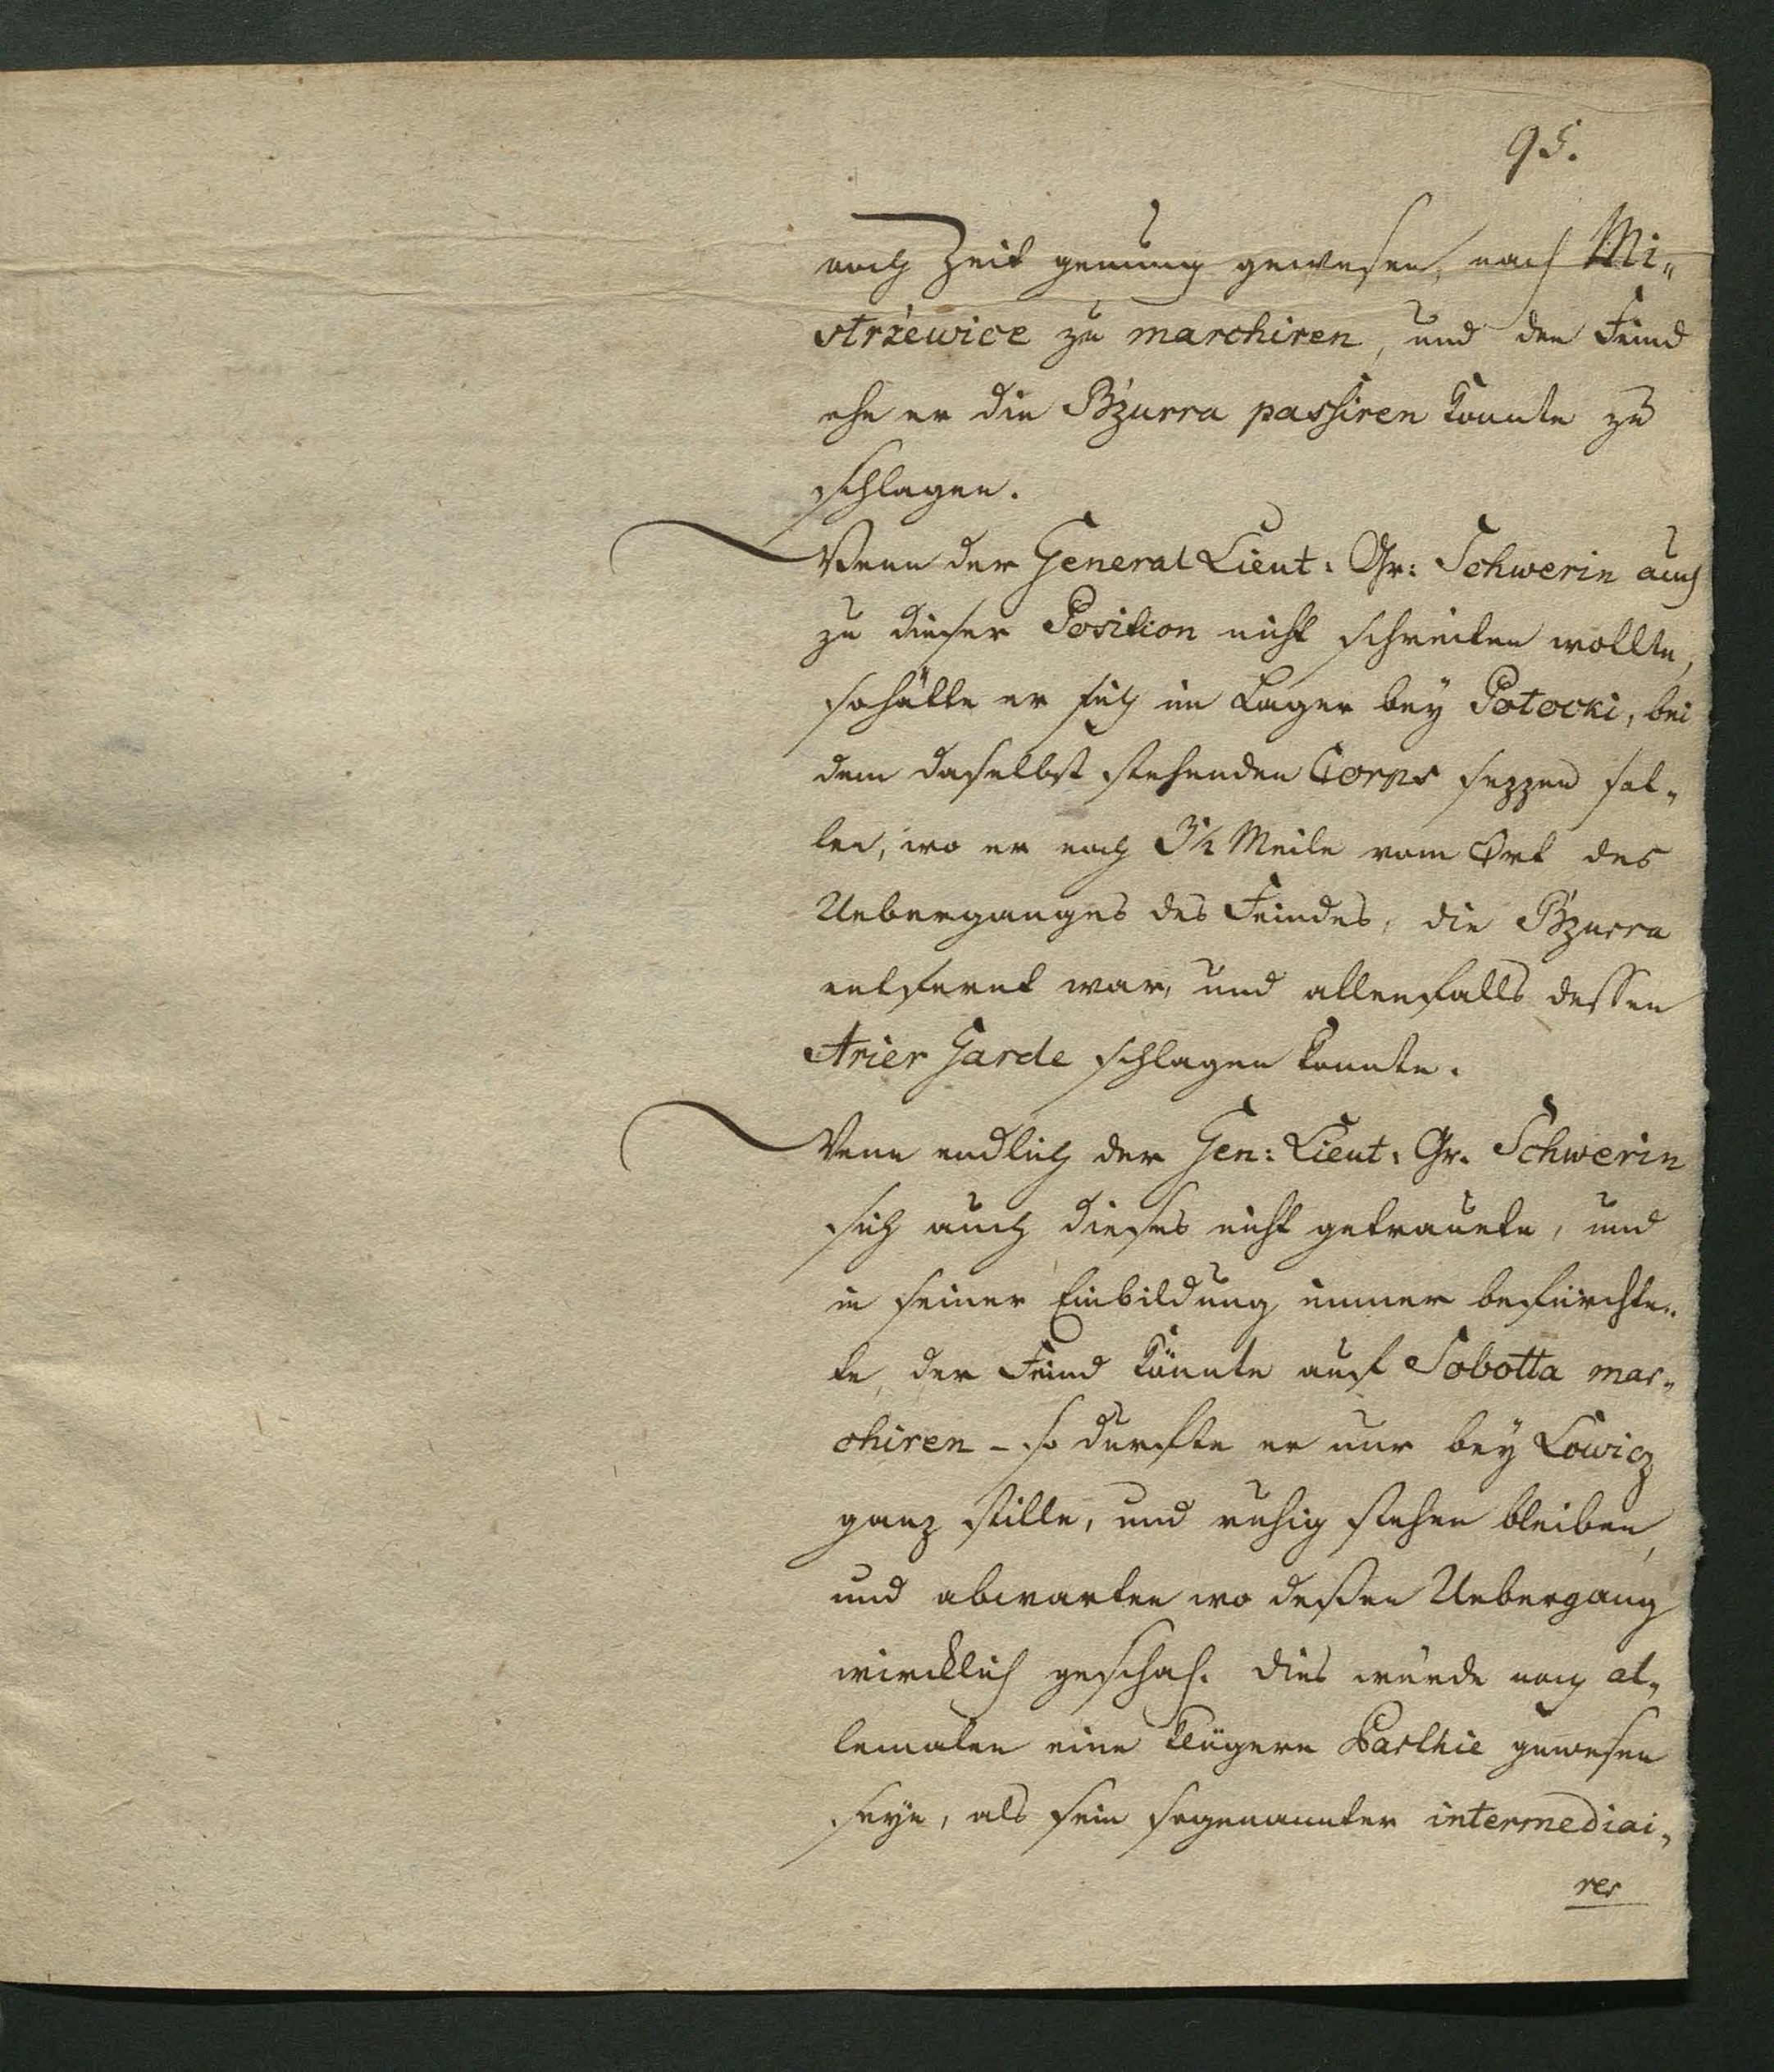 95.
noch Zeit genung gewesen, nach Mi„
strżewice zu marchiren, und den Feind
ehe er die Bżurra passiren konnte zu
schlagen.
Wenn der General Lieut: Gr: Schwerin auch
zu dieser Position nicht schreiten wollte,
so hätte er sich im Lager bey Potocki, bei
dem daselbst stehenden Corps sezzen sol„
len, wo er noch 3½ Meile vom Ort des
Ueberganges des Feindes, die Bżurra
entfernt war, und allenfalls dessen
Arier Garde schlagen konnte.
Wenn endlich der Gen: Lieut: Gr. Schwerin
sich auch dieses nicht getrauete, und
in seiner Einbildung immer befürchte„
te, der Feind könnte auf Sobotta mar„
chiren – so durfte er nur bey Lowicz
ganz stille, und ruhig stehen bleiben,
und abwarten wo deßen Uebergang
wircklich geschah. Dies würde noch al„
lemalen eine klügere Parthie gewesen
seyn, als sein sogenannter intermediai„
res